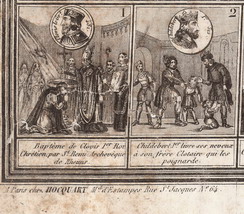 1
2
Baptême de Clovis I.er Roi
Chrétien, par S.t Remi Archevêque
de Rheims
Childebert I.er livre ses neveux
à son frère Clotaire qui les
poignarde.
A Paris chez HOCQUART M.d d'Estampes Rue S.t Jacques N.o 64.